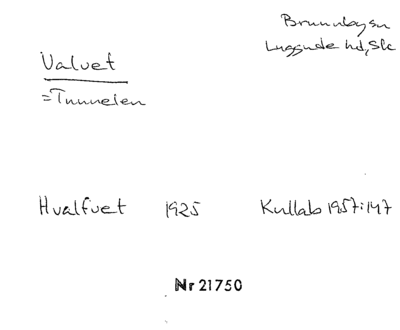 Brunnby sn
Luggude hd, Sk
Valvet
=Tunnelen
Hvalfvet 1925 Kullab 1957:147
Nr 21750